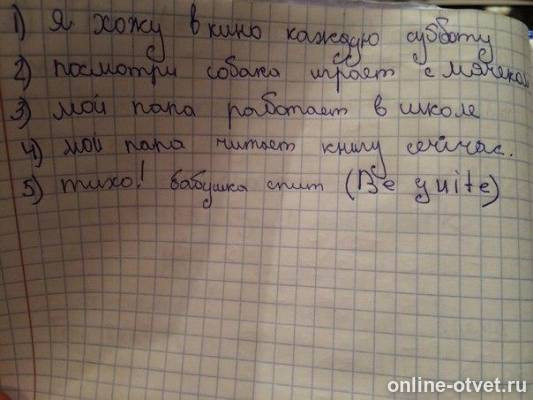 1) Я хожу в кино каждую субботу
2) посмотри собака играет с мячекам
3) мой папа работает в школе
4) мой папа читает книгу сейчас.
5) тихо! бабушка спит (Be quite)
online-otvet.ru